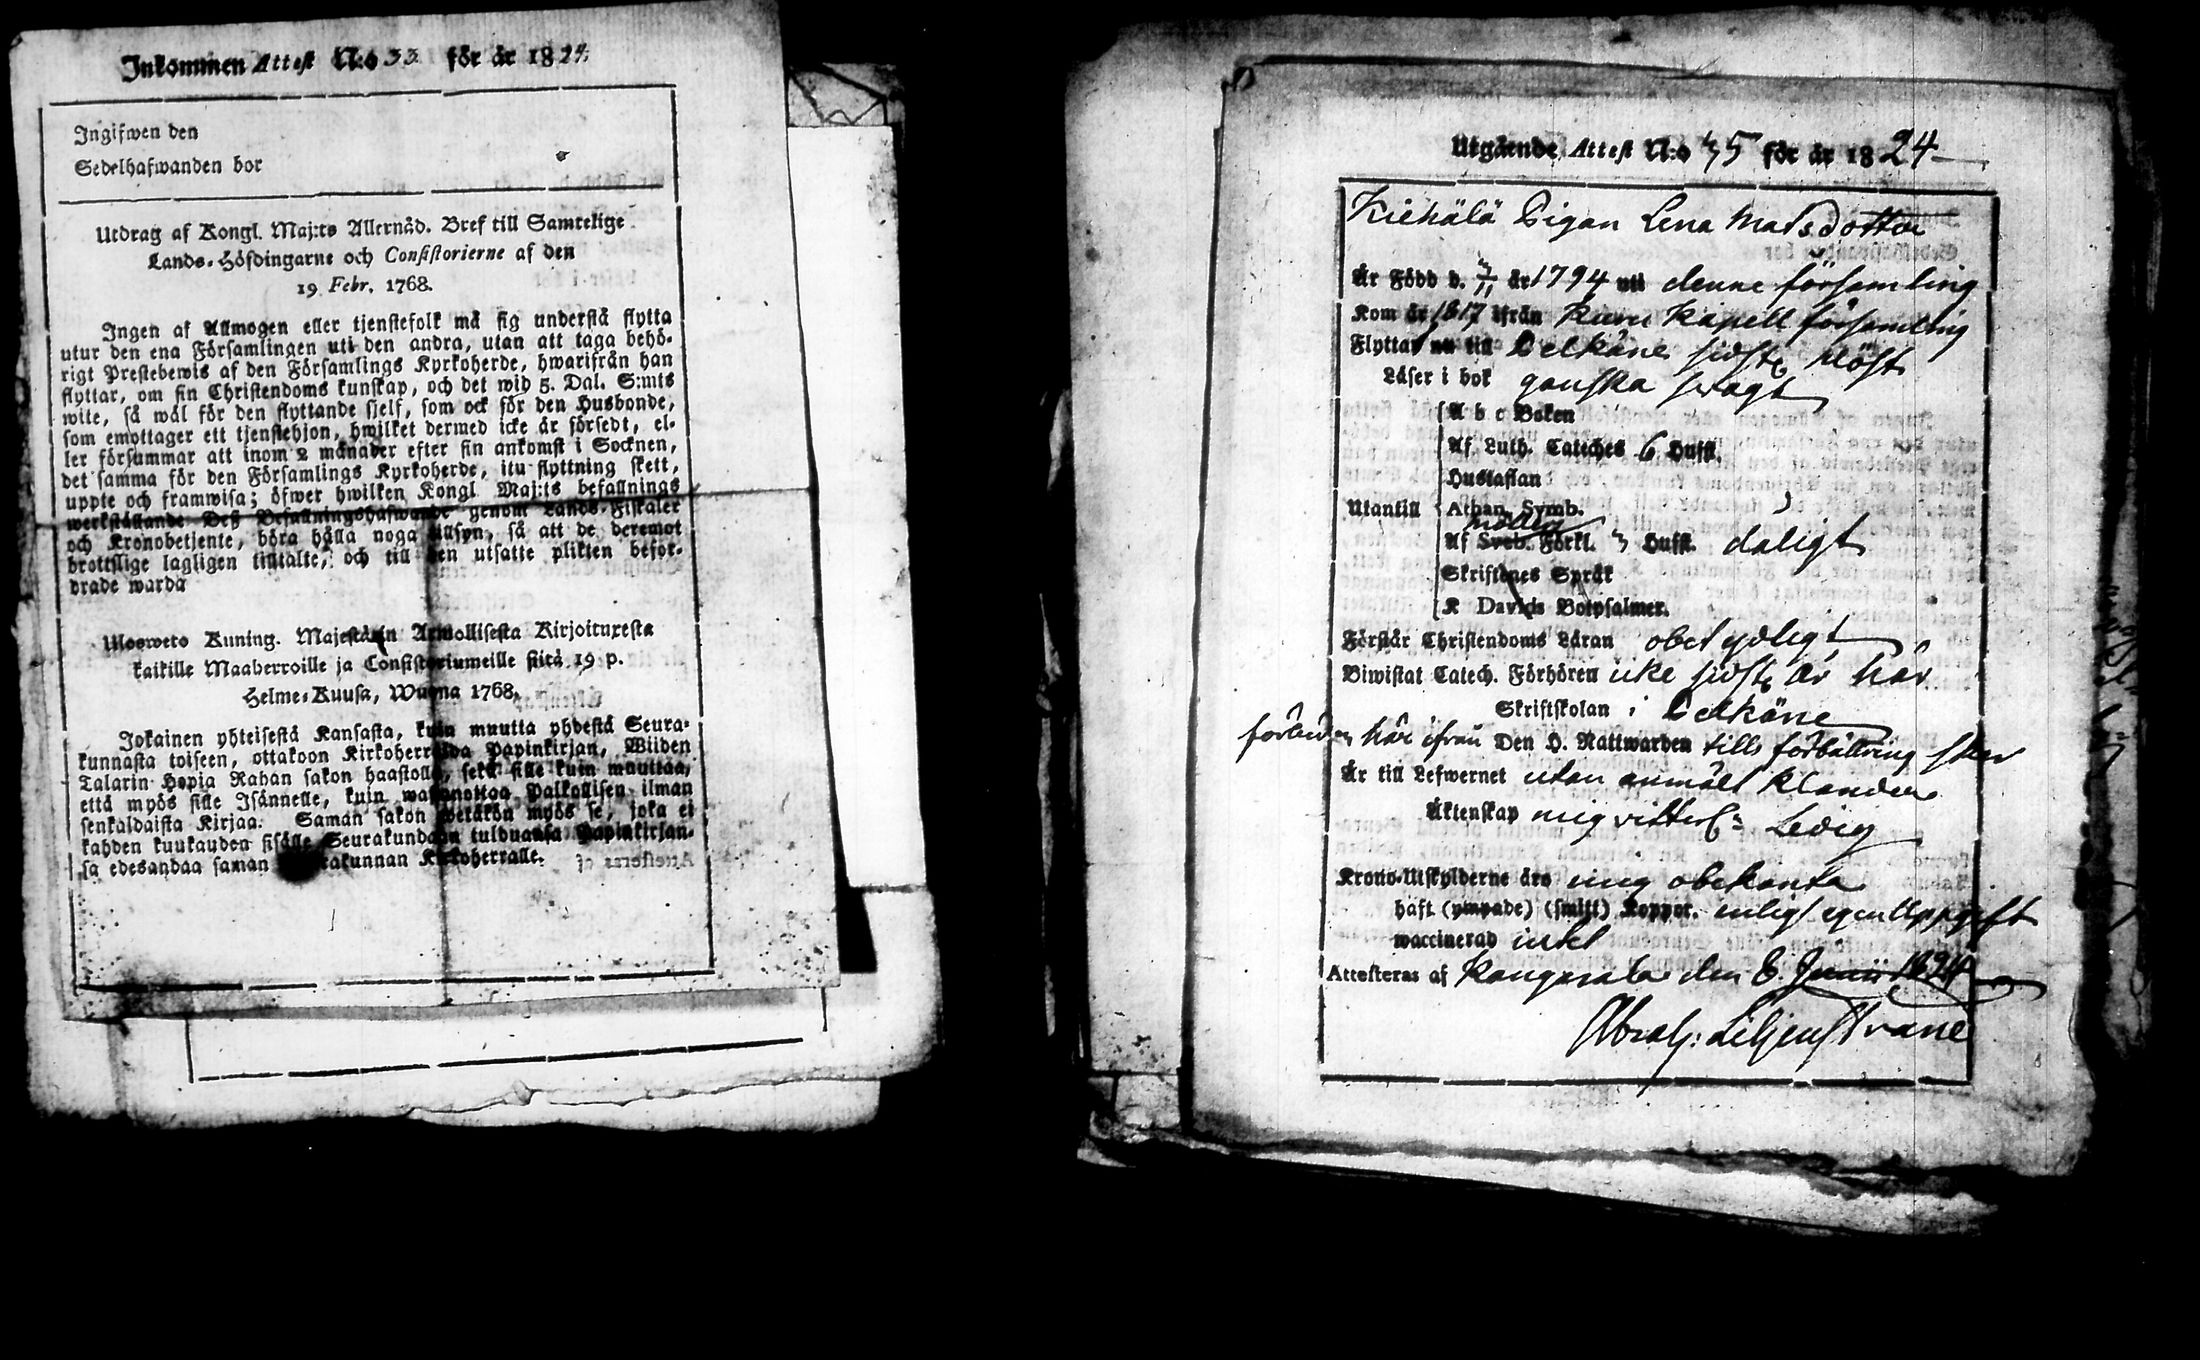 Inkommen Attest N:o 33. för år 1824.
Ingifwen den
Sedelhafwanden bor
Utdrag af Kongl. Maj:ts Allernåd. Bref till Samtelige
Lands-Höfdingarne och Consistorierne af den
19 Febr. 1768.
Ingen af Allmogen eller tjenstefolk må sig understå flytta
utur den ena Församlingen uti den andra, utan att taga behö-
rigt Prestebewis af den Församlings Kyrkoherde, hwarifrån han
flyttar, om sin Christendoms kunskap, och det wid 5. Dal. S:mts
wite, så wäl för den flyttande sjelf, som ock för den Husbonde,
som emottager ett tjenstehjon, hwilket dermed icke är försedt, el-
ler försummar att inom 2 månader efter sin ankomst i Socknen,
det samma för den Församlings Kyrkoherde, itu flyttning skett,
uppte och framwisa; öfwer hwilken Kongl Maj:ts befallnings
werkställande Deß Befallningshafwande genom Lands-Fiskaler
och Kronobetjente, böra hålla noga tillsyn, så att de deremot
brottslige lagligen tilltalte, och till den utsatte plikten befor-
drade warda
Ulosweto Kuning. Majestätin Armollisesta Kirjoituxesta
kaikille Maaherroille ja Consistoriumeille siitä 19 p.
Helme-Kuusa, Wuona 1768.
Jokainen yhteisestä Kansasta, kuin muutta yhdestä Seura-
kunnasta toiseen, ottakoon Kirkoherralda Papinkirjan, Wiiden
Talarin Hopia Rahan sakon haastolla, sekä sille kuin muuttaa,
että myös sille Isännelle, kuin wastanottaa Palkollisen ilman
senkaldaista Kirjaa. Saman sakon wetäkön myös se, joka ei
kahden kuukauden sisälle Seurakundaan tulduansa Papinkirjan-
sa edesandaa saman Seurakunnan Kirkoherralle.
Utgående Attest N:o 35 för år 1824
Kiehälä Pigan Lena Matsdotter
År Född d. 3/11 år 1794 uti denne församling
Kom år 1817 ifrån Kuru Kapell församling
Flyttar nu till Pelkäne sidste Höst
Läser i bok ganska svagt
A b c Boken
Af Luth. Cateches 6 Hufst.
Hustaflan
Utantill Athan. Symb.
Möllers
Af Sveb. Förkl. 3 Hufst. dåligt
Skriftenes Språk
K Davids Botpsalmer.
Förstår Christendoms Läran obetydligt
Biwistat Catech. Förhören icke sidste år här
Skriftskolan i Pelkäne
förbuden här ifrån Den H. Nattwarden tills förbättring sker
Är till Lefwernet utan anmält klander
Äktenskap mig vitterl: Ledig
Krono-Utskylderne äro mig obekanta
haft (ympade) (smitt) Koppor. enligt egen Uppgift
waccinerad intet
Attesteras af Kangasala den 8 Junii 1824
Abrah: Liljenstrane